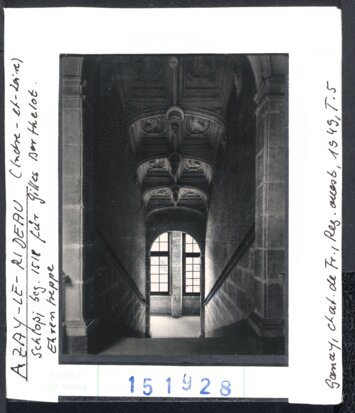 AZAY-LE-RIDEAU (Indre-et-Loire)
Schloß, beg. 1518 für Gilles Berthelot.
Ehrentreppe
Ganay, Chat. de Fr., Reg. ouest, 1949, T. 5
151928